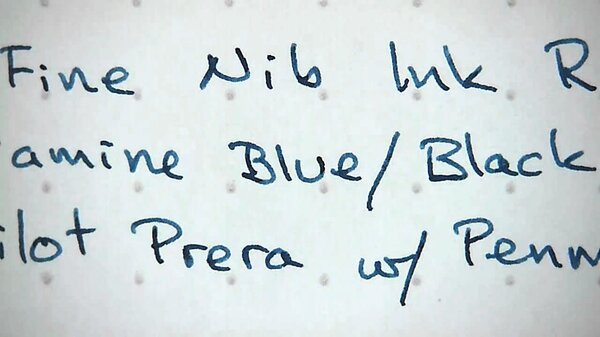 Fine Nib Ink R
amine Blue/Black
ilot Prera w/ Penm